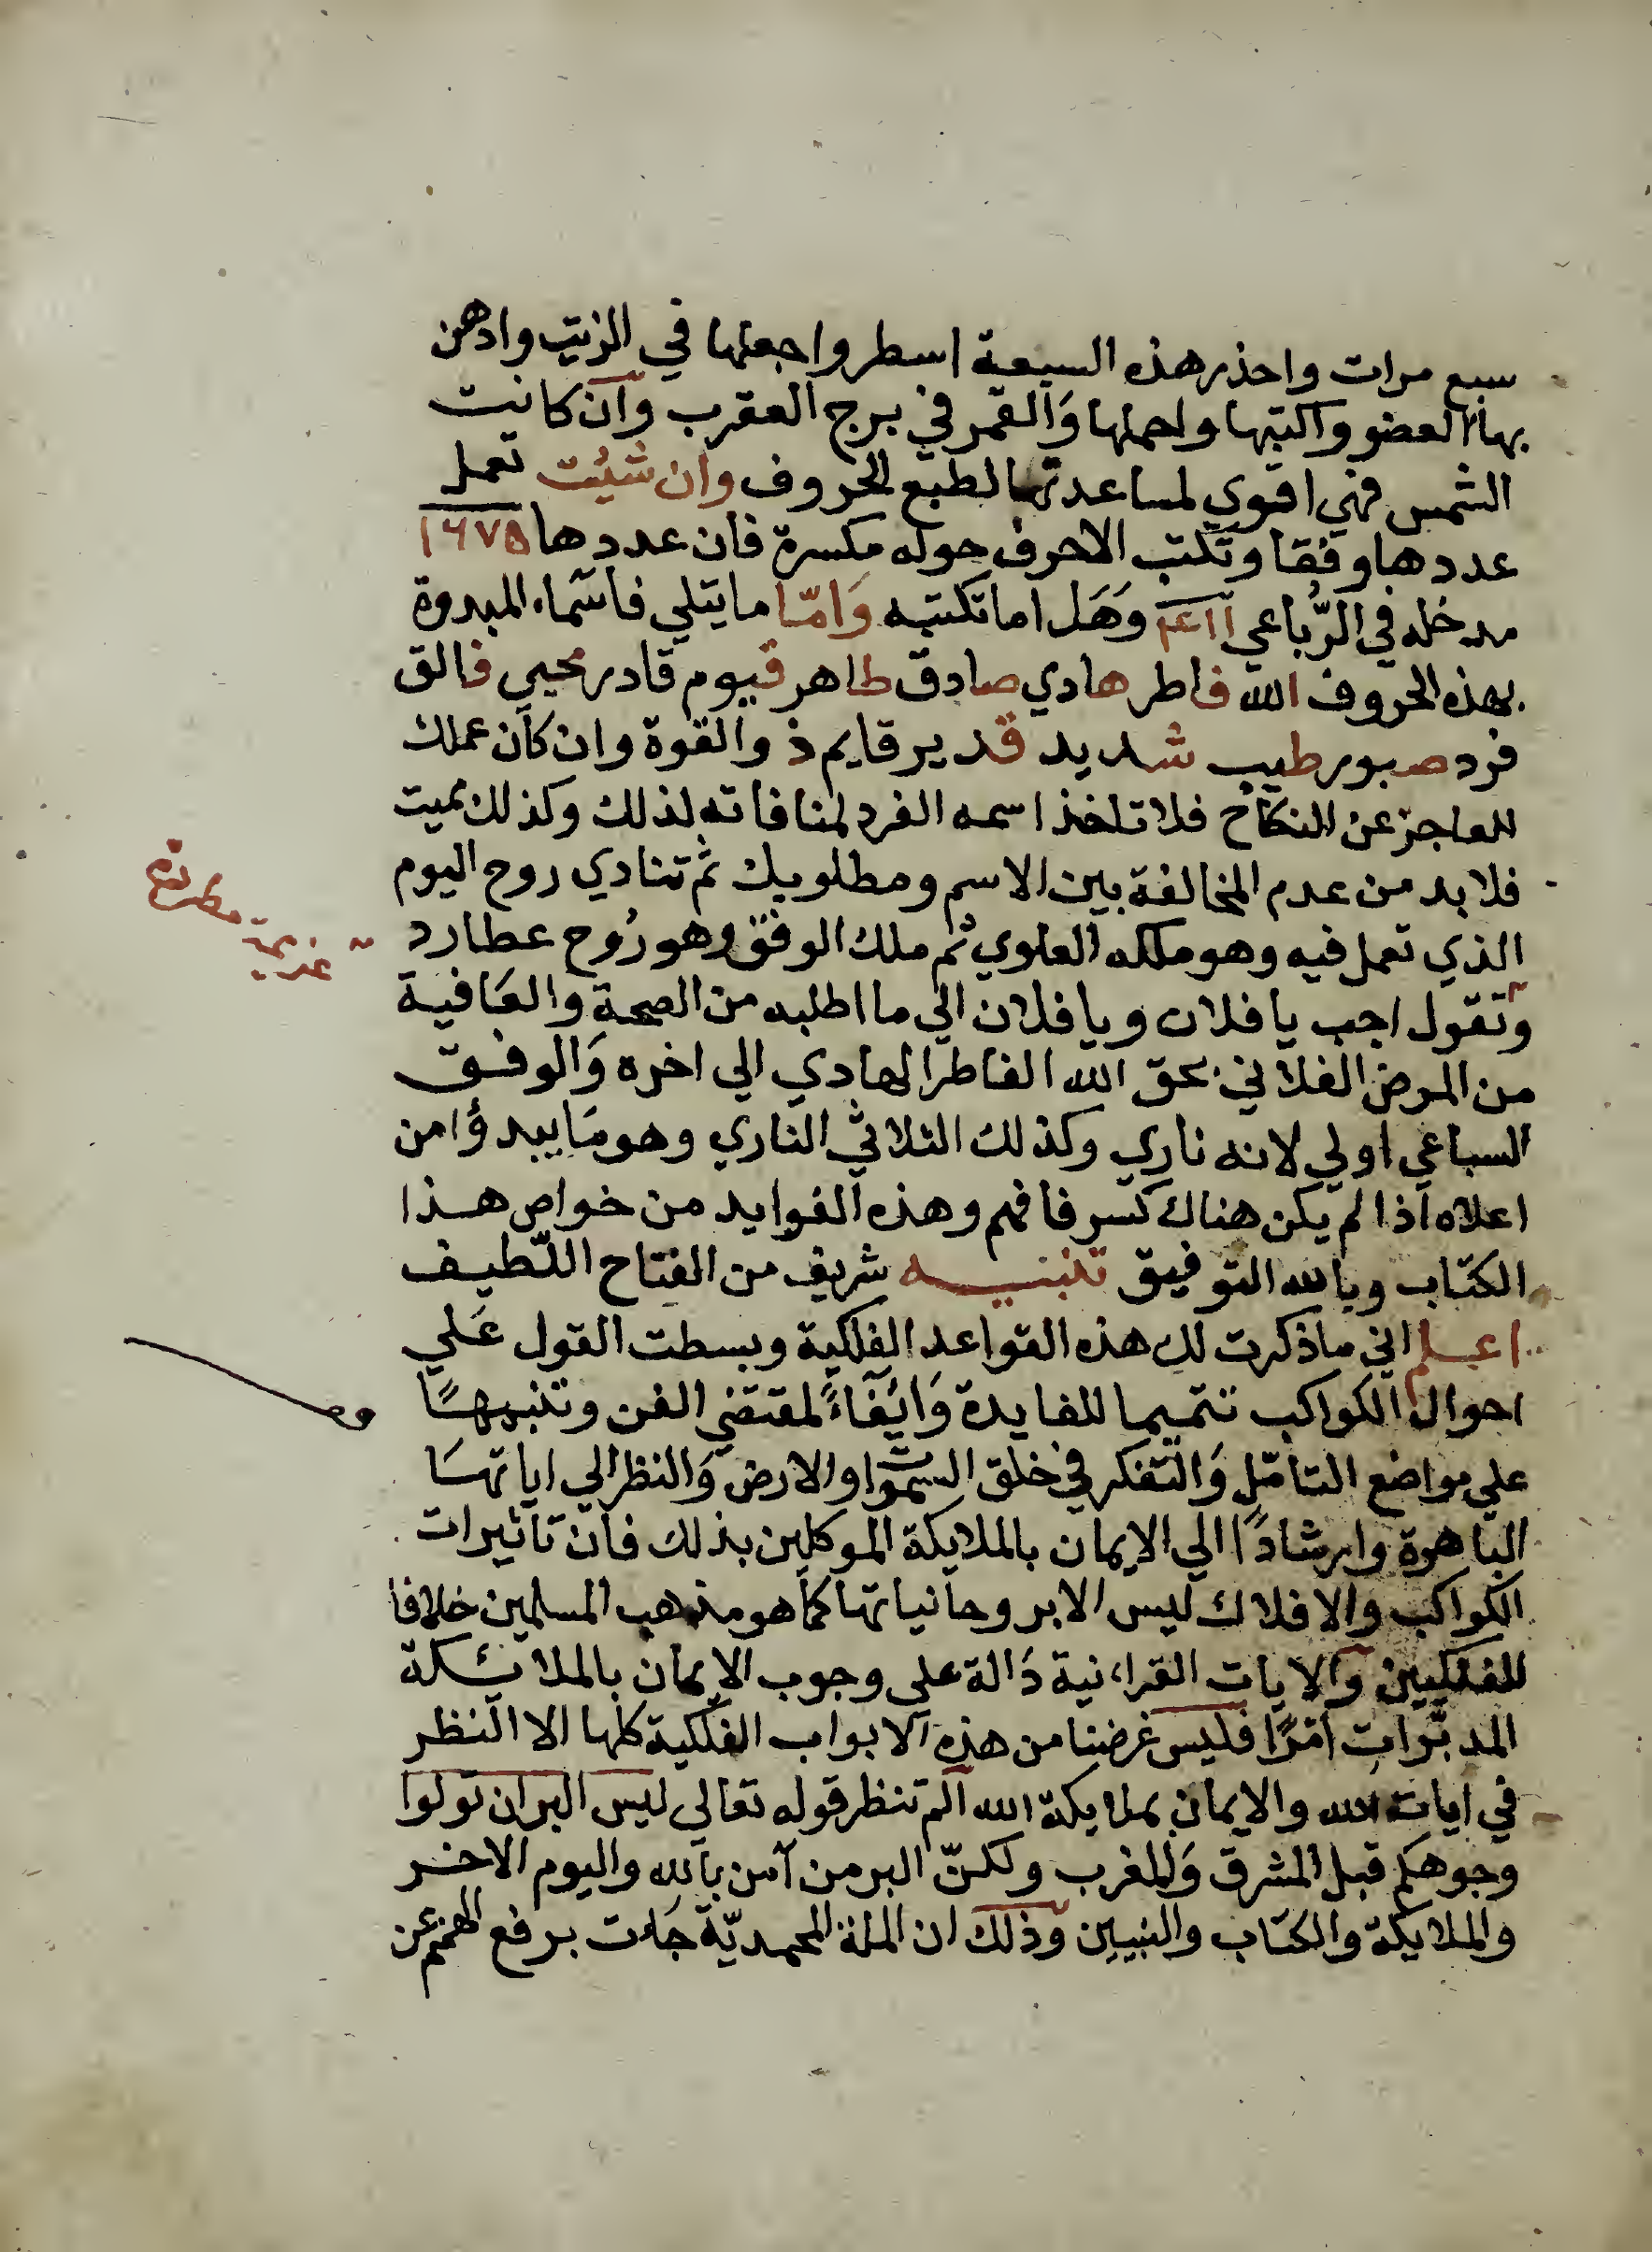 سبع مرات واحذر هذه السبعة اسطر واجعلها في الزيت وادهن
بها العضو واكتبها واحملها والقمر في برج العقرب وان كانت
الشمس فهي اقوي لمساعدتها لطبع الحروف وان شئت تعمل
عددها وفقا وتكتب الاحرف حوله مكسرة فان عددها ١٦٧٥
مدخله في الرباعي وهل اما تكتبه واما ما يتلي فاسماء المبدوة
بهذه الحروف الله فاطر هادي صادق طاهر قيوم قادر محيي فالق
فرد صبور طيب شديد قدير قايم ذو القوة وان كان عملك
للعاجز عن النكاح فلا تاخذ اسمه الفرد لمنافاته لذلك وكذلك مميت
فلا بد من عدم المخالفة بين الاسم ومطلوبك ثم تنادي روح اليوم
الذي تعمل فيه وهو ملكه العلوي ثم ملك الوفق وهو روح عطارد
وتقول اجب يا فلان ويا فلان الي ما اطلبه من الصحة والعافية
من المرض الفلاني بحق الله الفاطر الهادي الي اخره والوفق
السباعي اولي لانه ناري وكذلك الثلاثي الناري وهو ما يبدؤا من
اعلاه اذا لم يكن هناك كسر فافهم وهذه الفوايد من خواص هذا
الكتاب وبالله التوفيق تنبيه شريف من الفتاح اللطيف
اعلم اني ما ذكرت لك هذه القواعد الفلكية وبسطت القول علي
احوال الكواكب تتميما للفايدة وايفاءً لمقتضي الفن وتنبيهًا
علي مواضع التامّل والتفكر في خلق السموات والارض والنظر الي اياتها
الباهرة وارشادًا الي الايمان بالملايكة الموكلين بذلك فان تاثيرات
الكواكب والافلاك ليس الا بروحانياتها كما هو مذهب المسلمين خلافا
للفلكيين والايات القراءنية دالة علي وجوب الايمان بالملائكة
المدبّرات امرًا فليس غرضنا من هذه الابواب الفلكية كلها الا النظر
في ايات الله والايمان بملايكة الله الم تنظر قوله تعالي ليس البر ان تولوا
وجوهكم قبل المشرق والمغرب ولكنّ البر من آمن بالله واليوم الاخر
والملايكة والكتاب والنبيين وذلك ان الملة المحمديّة جاءت برفع الهمم عن
عزيمة